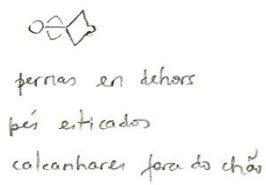 pernas en dehors
pés esticados
calcanhares fora do chão